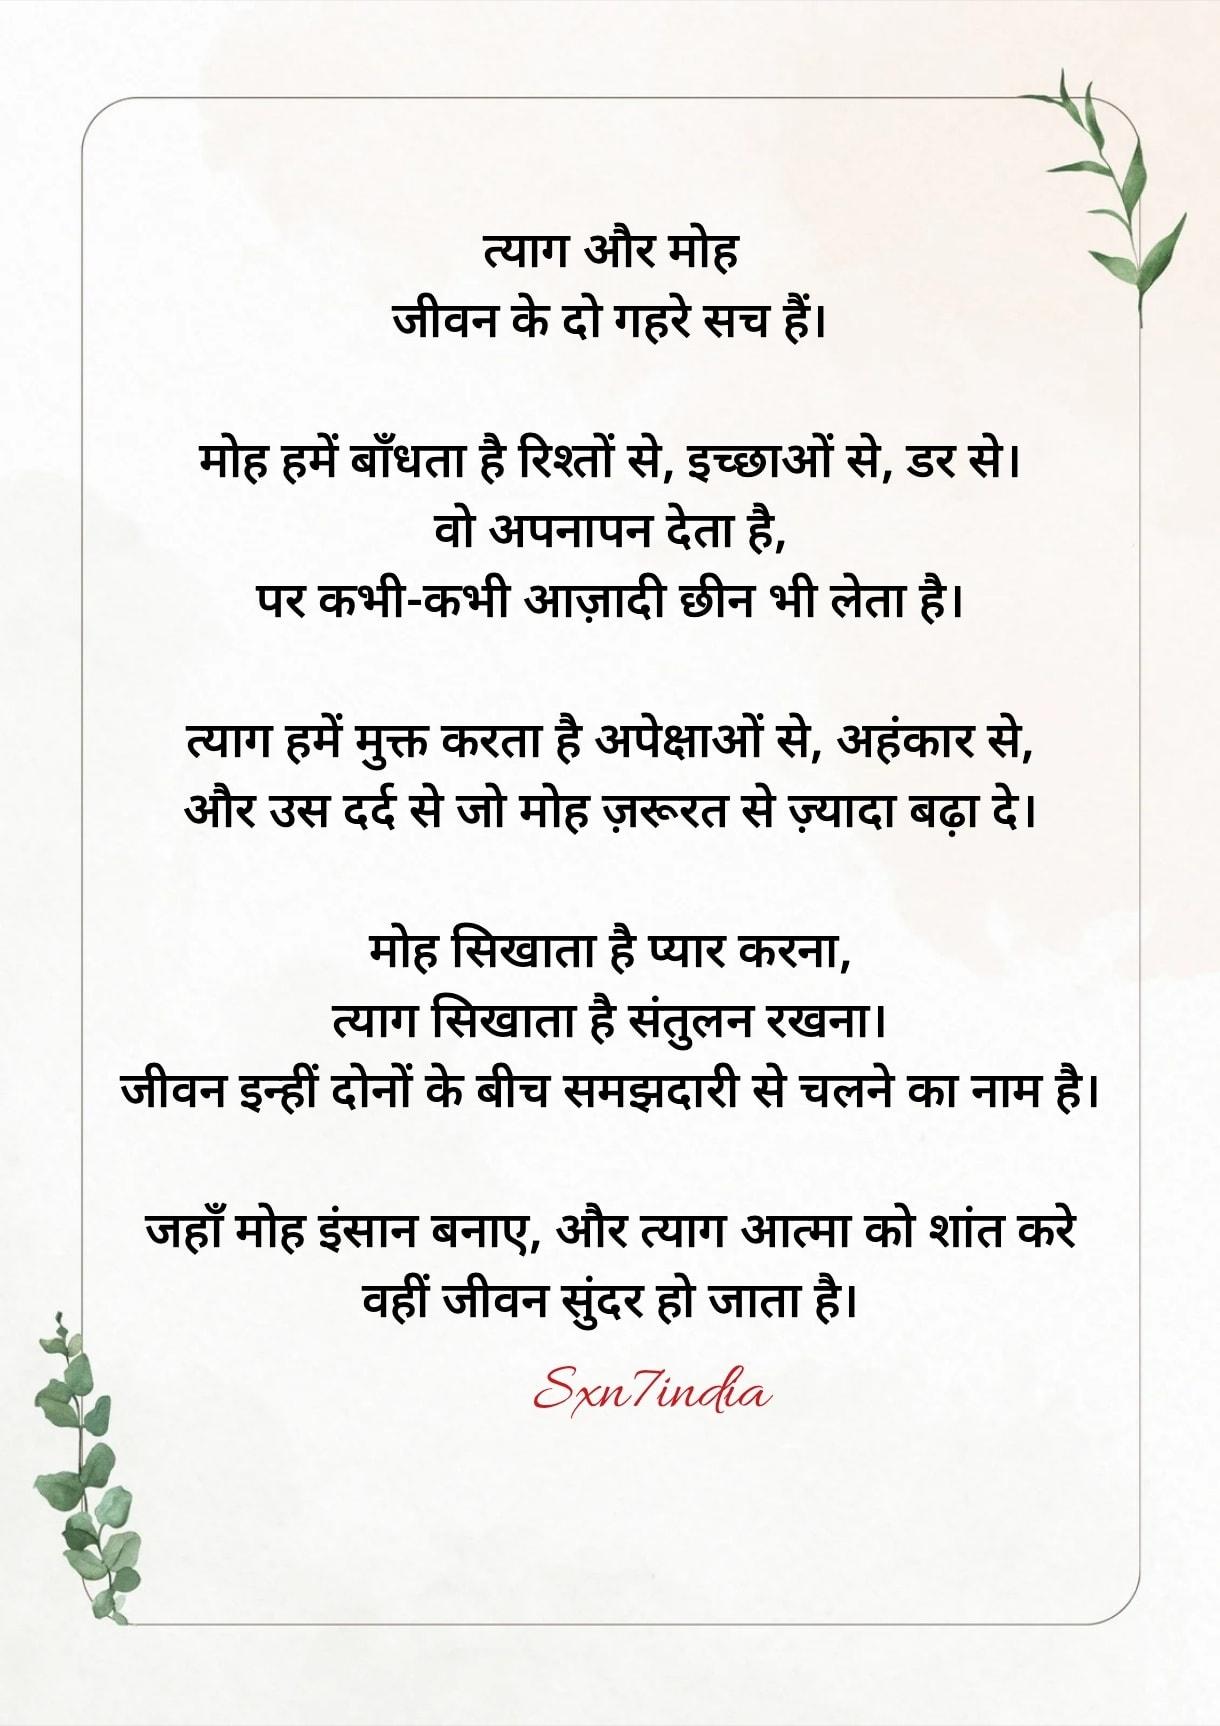 त्याग और मोह
जीवन के दो गहरे सच हैं।
मोह हमें बाँधता है रिश्तों से, इच्छाओं से, डर से।
वो अपनापन देता है,
पर कभी-कभी आज़ादी छीन भी लेता है।
त्याग हमें मुक्त करता है अपेक्षाओं से, अहंकार से,
और उस दर्द से जो मोह ज़रूरत से ज़्यादा बढ़ा दे।
मोह सिखाता है प्यार करना,
त्याग सिखाता है संतुलन रखना।
जीवन इन्हीं दोनों के बीच समझदारी से चलने का नाम है।
जहाँ मोह इंसान बनाए, और त्याग आत्मा को शांत करे
वहीं जीवन सुंदर हो जाता है।
Sxn7india